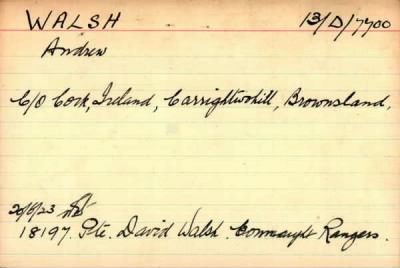 WALSH 13/D/7700
Andrew
C/O Cork, Ireland, Carrightwohill, Brownsland,
20/6/23
18197. Pte. David Walsh. Connaught Rangers.